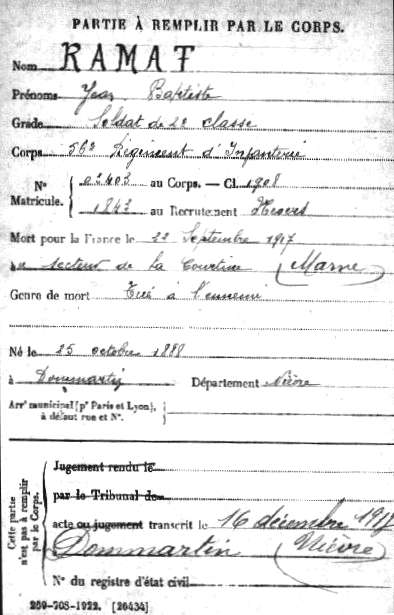 PARTIE À REMPLIR PAR LE CORPS.
Nom RAMAT
Prénoms Jean Baptiste
Grade Soldat de 2e classe
Corps 56e Régiment d'Infanterie
N° Matricule. 02403 au Corps. — Cl. 1908
1843 au Recrutement Nevers
Mort pour la France le 22 Septembre 1917
au secteur de la Courtine (Marne)
Genre de mort Tué à l'ennemi
Né le 25 octobre 1888
à Dommartin Département Nièvre
Arrt municipal (pr Paris et Lyon), à défaut rue et N°.
Cette partie n'est pas à remplir par le Corps.
Jugement rendu le
par le Tribunal de
acte ou jugement transcrit le 16 décembre 1917
Dommartin (Nièvre)
N° du registre d'état civil
269-708-1922. [26434]